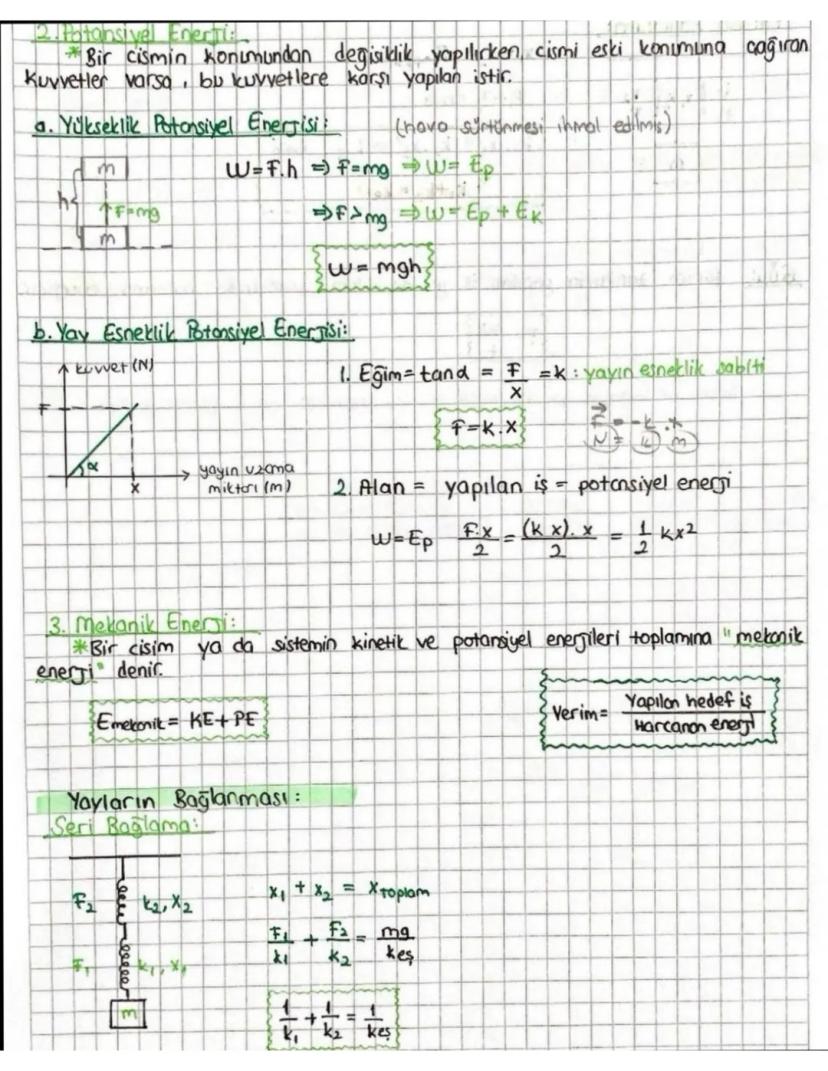 2. Potansiyel Enerji:
* Bir cismin konumundan değişiklik yapılırken, cismi eski konumuna çağıran
kuvvetler varsa, bu kuvvetlere karşı yapılan iştir.
a. Yükseklik Potansiyel Enerjisi: (hava sürtünmesi ihmal edilmiş)
m
W=F.h ⇒ F=mg ⇒ W= Ep
h
F=mg
⇒ F>mg ⇒ W= Ep + Ek
m
W = mgh
b. Yay Esneklik Potansiyel Enerjisi:
kuvvet (N)
1. Eğim= tanα = F/x = k : yayın esneklik sabiti
F
F=k.X
F = -k.x
N = k m
α
yayın uzama
x
miktarı (m)
2. Alan = yapılan iş = potansiyel enerji
W=Ep F.x/2 = (k x). x/2 = 1/2 kx²
3. Mekanik Enerji:
* Bir cisim ya da sistemin kinetik ve potansiyel enerjileri toplamına "mekanik
enerji" denir.
Emekanik = KE+PE
Verim= Yapılan hedef iş / Harcanan enerji
Yayların Bağlanması:
Seri Bağlama:
F₂ k₂, X₂
x₁ + x₂ = xtoplam
F₁ k₁, x₁
F₁/k₁ + F₂/k₂ = mg/keş
m
1/k₁ + 1/k₂ = 1/keş